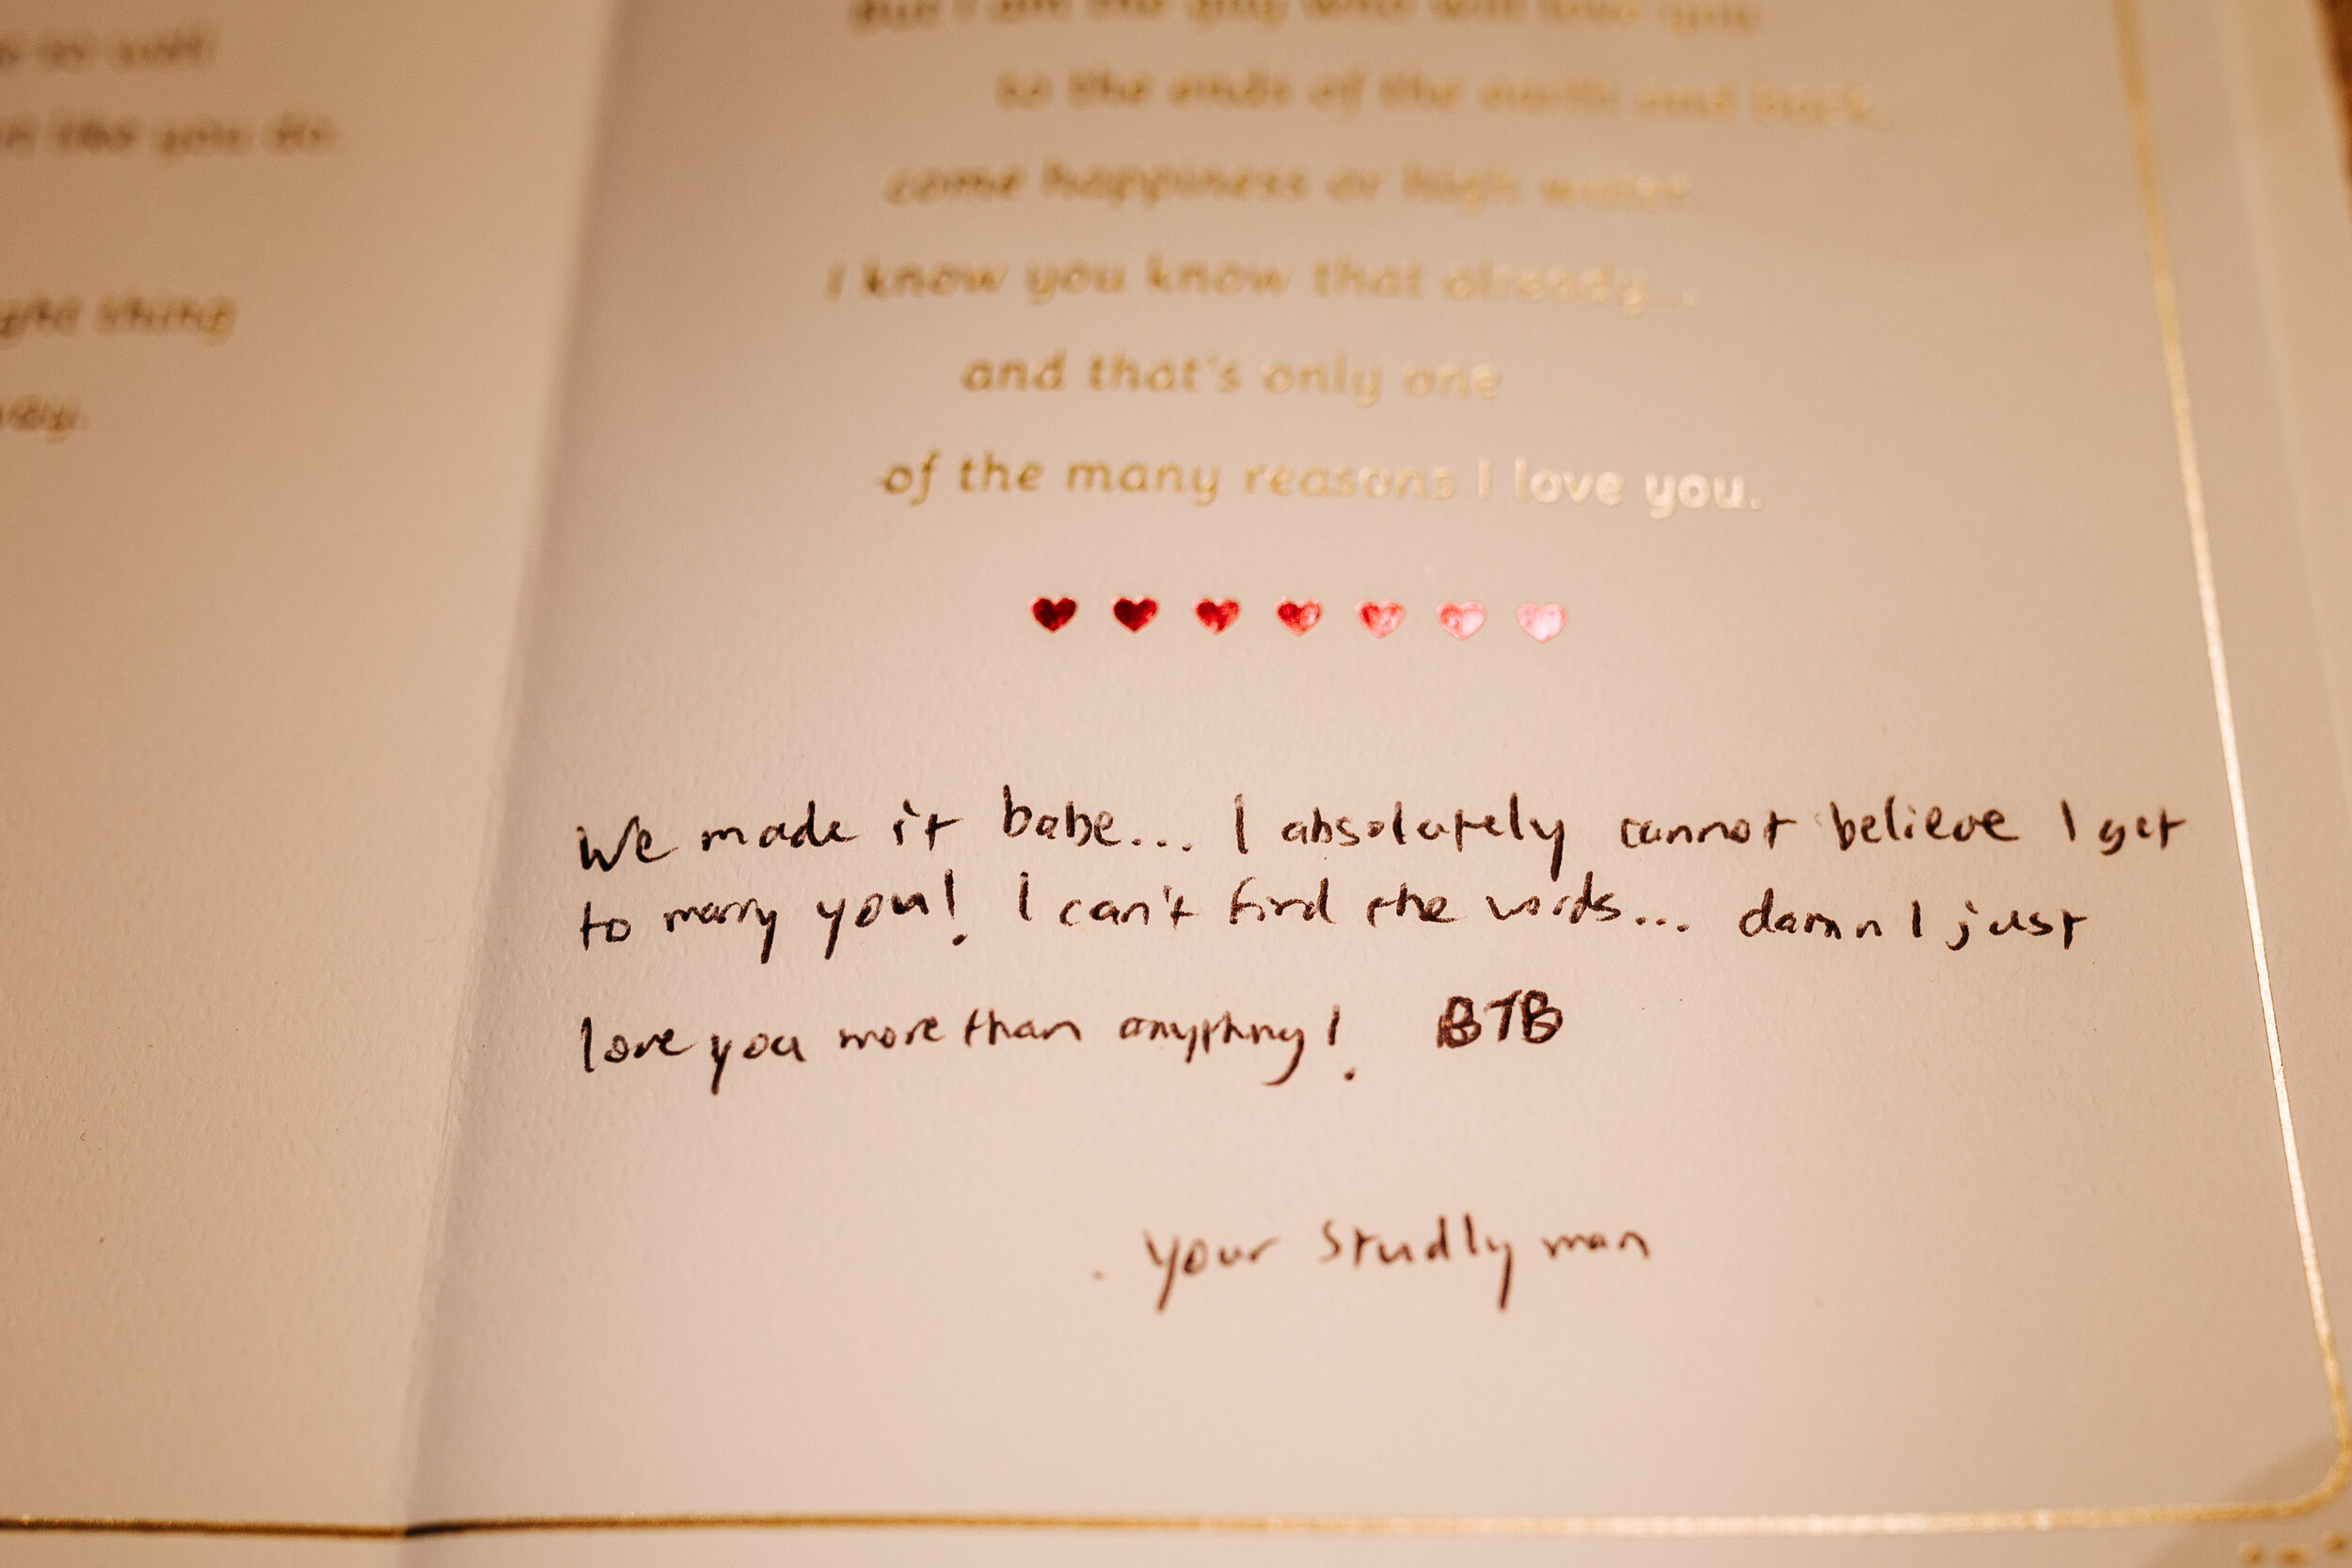 like you do.
thing
But I am the guy who will love you
to the ends of the earth and back,
come happiness or high water.
I know you know that already...
and that's only one
of the many reasons I love you.
We made it babe... I absolutely cannot believe I get
to marry you! I can't find the words... damn I just
love you more than anything! BTB
. your studly man